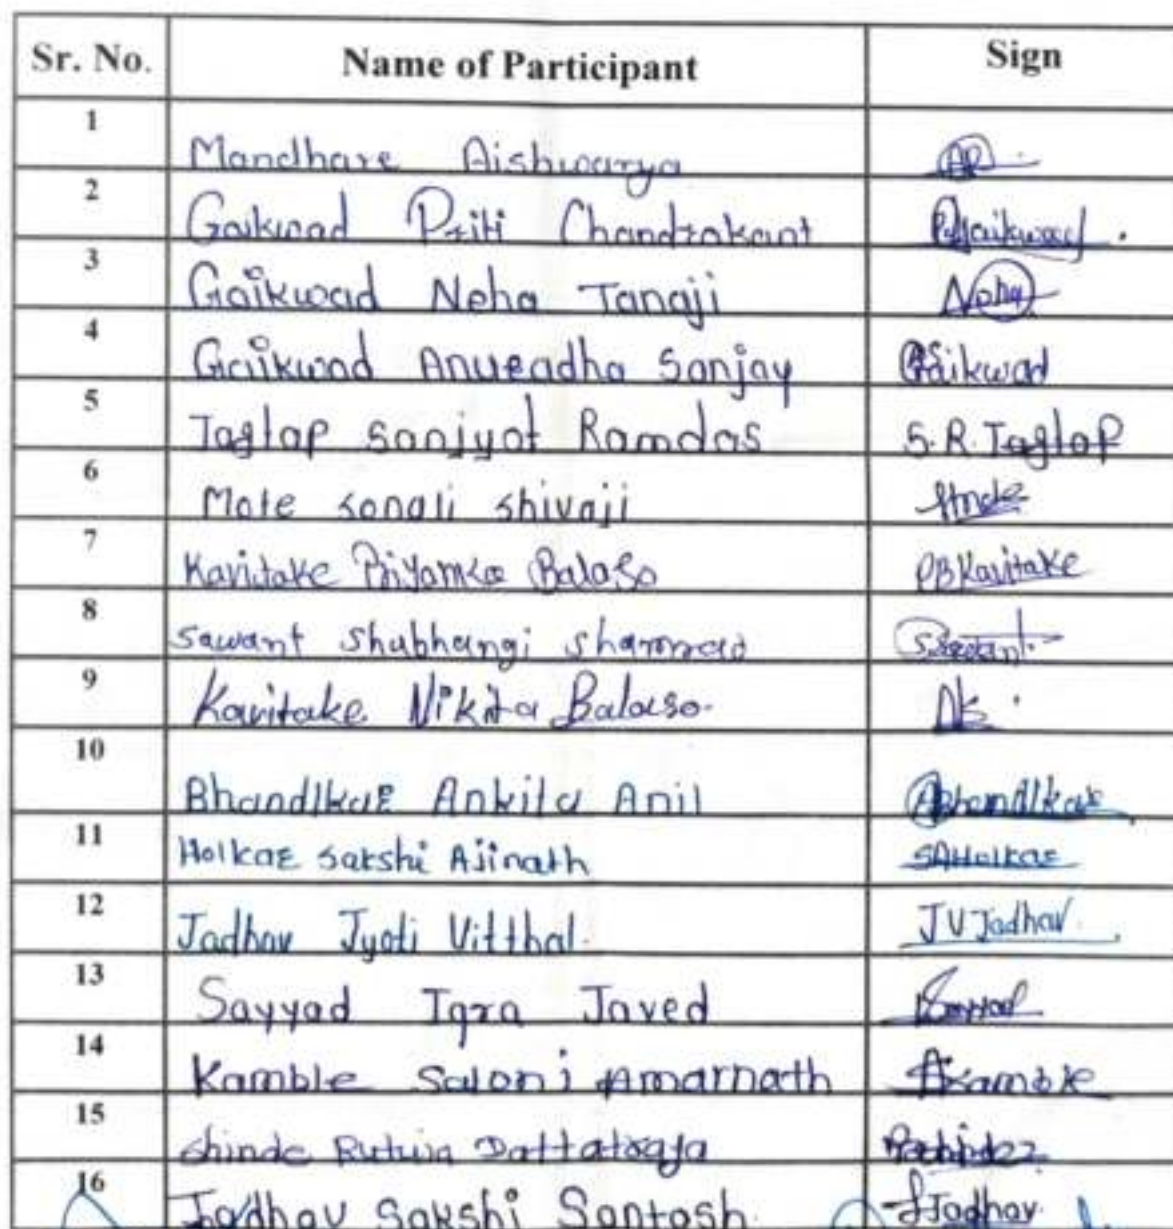 Sr. No. Name of Participant Sign
1 Mandhare Aishwarya AP
2 Gaikwad Priti Chandrakant PGaikwad.
3 Gaikwad Neha Tanaji Neha
4 Gaikwad Anuradha Sanjay Gaikwad
5 Jagtap Sanjyot Ramdas S.R.Jagtap
6 Mote sonali shivaji
7 Kavitake Priyanka Balaso PBKavitake
8 Sawant Shubhangi Sawant
9 Kavitake Nikita Balaso. NK.
10 Bhandlkar Ankita Anil ABhandlkar
11 Holkar Sakshi Ajinath SAHolkar
12 Jadhav Jyoti Vitthal. JVJadhav.
13 Sayyad Iqra Javed Sayyad
14 Kamble Saloni Amarnath Kamble
15 Shinde Rutuja Dattatraya
16 Jadhav Sakshi Santosh. Jadhav